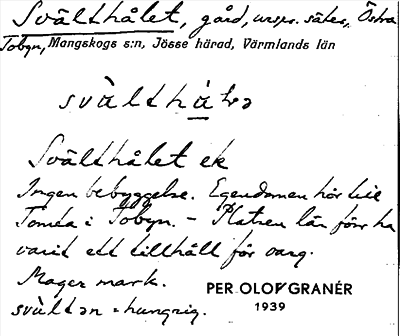 Svälthålet, gård, urspr. säter, Östra
Tobyn, Mangskogs s:n, Jösse härad, Värmlands län
Svälthålet ek
Ingen bebyggelse. Egendomen hör till
Tomta i Tobyn. - Platsen lär förr ha
varit ett tillhåll för varg.
Mager mark.
PER OLOV GRANÉR
1939
svältən = hungrig.